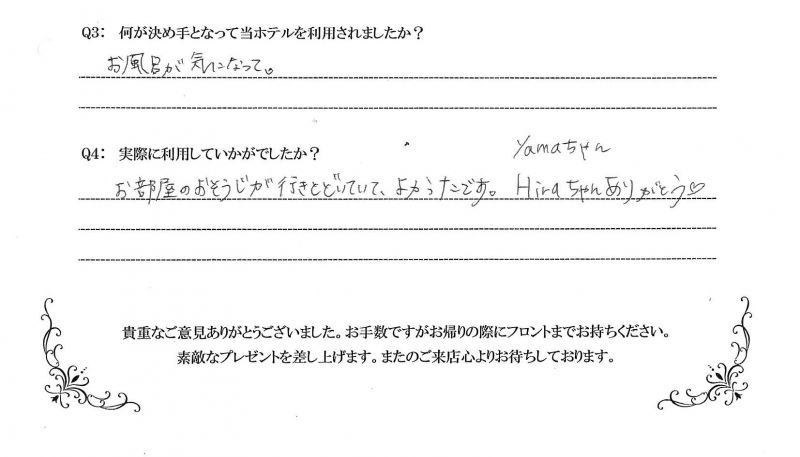 Q3: 何が決め手となって当ホテルを利用されましたか？
お風呂が気になって。
Q4: 実際に利用していかがでしたか？
Yamaちゃん
お部屋のおそうじが行きとどいていて、よかったです。 Hiraちゃんありがとう♡
貴重なご意見ありがとうございました。お手数ですがお帰りの際にフロントまでお持ちください。
素敵なプレゼントを差し上げます。またのご来店心よりお待ちしております。